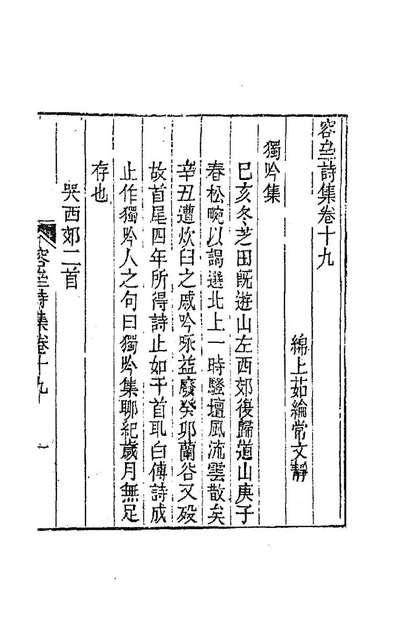 容亝詩集卷十九
綿上茹綸常文靜
獨吟集
巳亥冬芝田旣遊山左西郊復歸道山庚子
春松畹以謁選北上一時騷壇風流雲散矣
辛丑遭炊臼之戚吟咏益廢癸卯蘭谷又歿
故首尾四年所得詩止如干首取白傅詩成
止作獨吟人之句曰獨吟集聊紀歲月無足
存也
哭西郊二首
容亝詩集卷十九 一